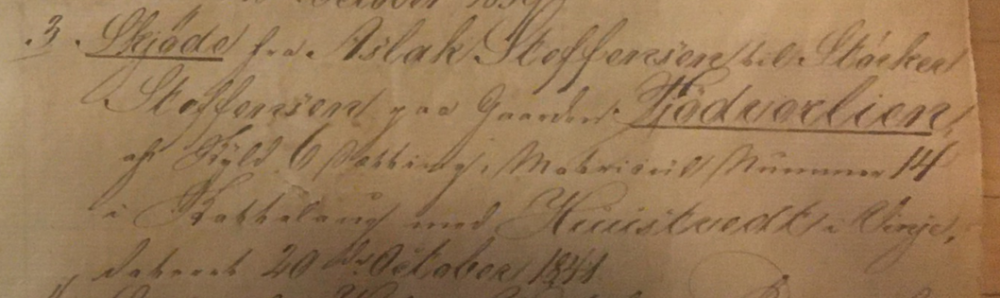 October 18
3. Skjöde fra Aslak Steffensen til Stärker
Steffensen paa Gaarden Kjödvorlien,
af Skyld 6 Sætting, Matricul Nummer 14
i Kobbelaug med Huustvedt i Vinje,
dateret 20de October 1841